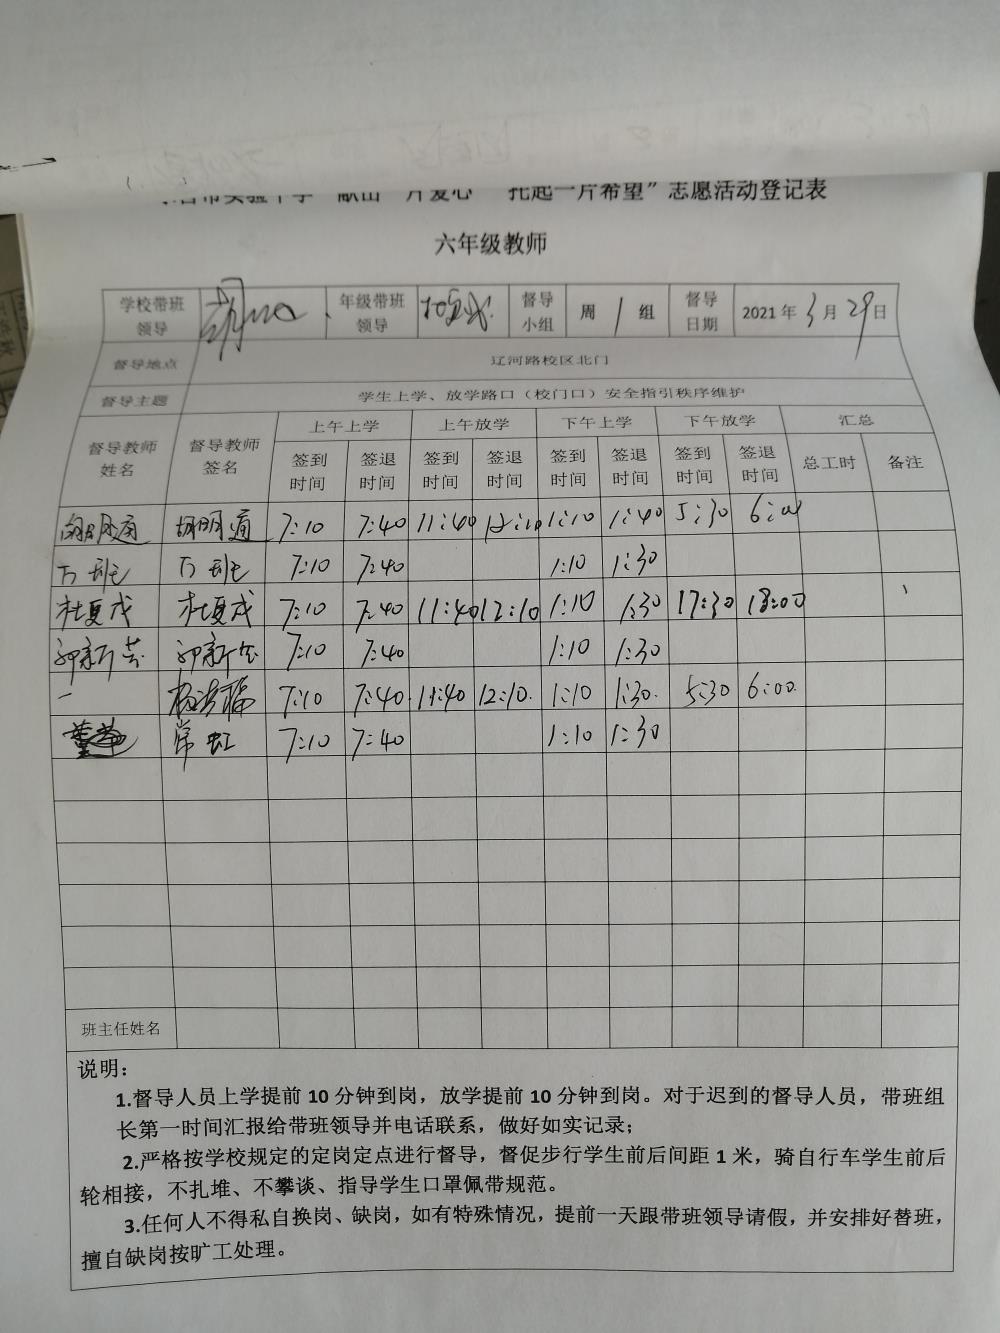 实验中学“献出一片爱心 托起一片希望”志愿活动登记表
六年级教师
学校带班领导 年级带班领导 督导小组 周1组 督导日期 2021年3月29日
督导地点 辽河路校区北门
督导主题 学生上学、放学路口（校门口）安全指引秩序维护
督导教师姓名 督导教师签名 上午上学 上午放学 下午上学 下午放学 汇总
签到时间 签退时间 签到时间 签退时间 签到时间 签退时间 签到时间 签退时间 总工时 备注
胡明通 胡明通 7:10 7:40 11:40 12:10 1:10 1:40 5:30 6:00
万班 万班 7:10 7:40 1:10 1:30
杜夏成 杜夏成 7:10 7:40 11:40 12:10 1:10 1:30 17:30 18:00
新 新 7:10 7:40 1:10 1:30
7:10 7:40 11:40 12:10 1:10 1:30 5:30 6:00
常虹 7:10 7:40 1:10 1:30
班主任姓名
说明：
1.督导人员上学提前10分钟到岗，放学提前10分钟到岗。对于迟到的督导人员，带班组
长第一时间汇报给带班领导并电话联系，做好如实记录；
2.严格按学校规定的定岗定点进行督导，督促步行学生前后间距1米，骑自行车学生前后
轮相接，不扎堆、不攀谈、指导学生口罩佩带规范。
3.任何人不得私自换岗、缺岗，如有特殊情况，提前一天跟带班领导请假，并安排好替班，
擅自缺岗按旷工处理。